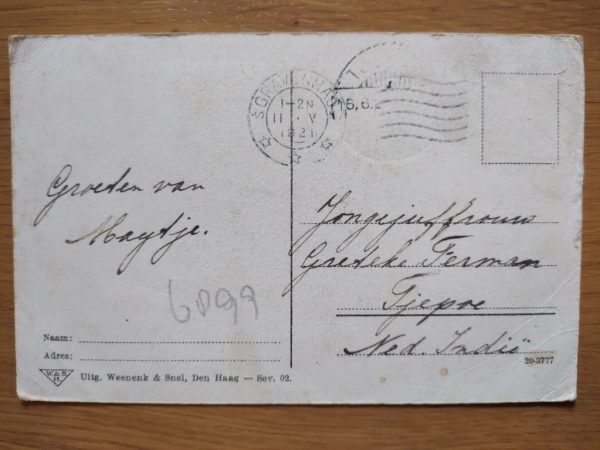 'SGRAVENHAGE
1-2N
11.V
1921
16.6.2
Groeten van
Maytje.
Jongejuffrouw
Greteke Ferman
Tjepoe
Ned. Indië
6099
Naam:
Adres:
W & S
H.
Uitg. Weenenk & Snel, Den Haag — Sev. 02.
20-3777